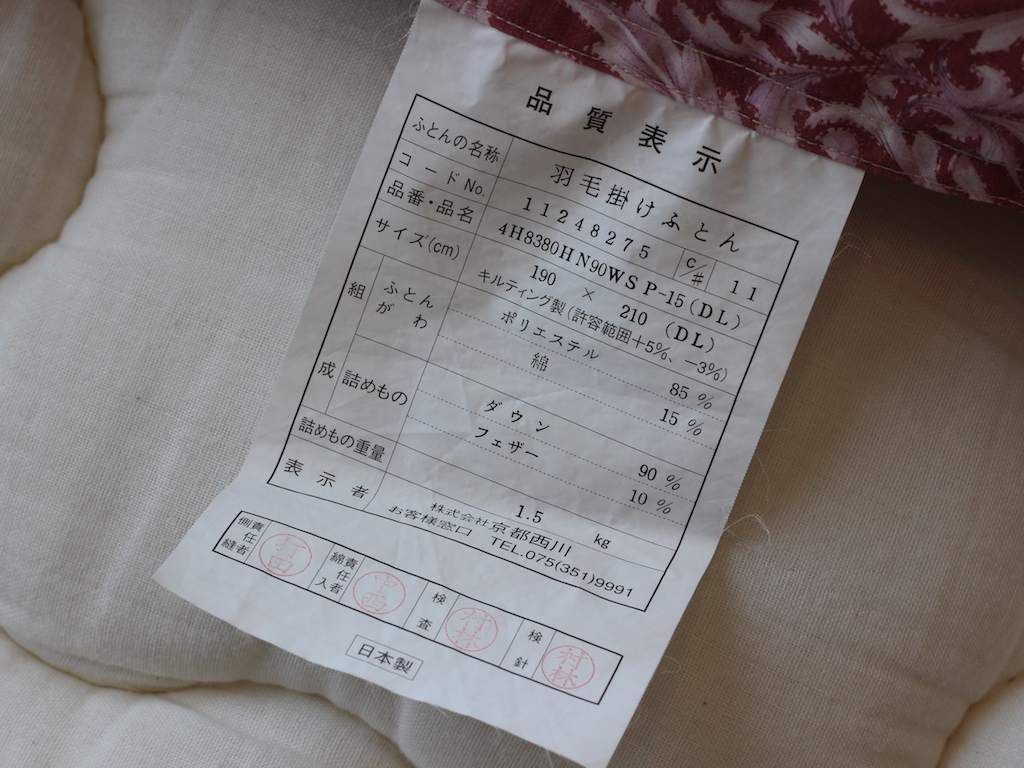 品質表示
ふとんの名称 羽毛掛けふとん
コードNo. 11248275 C/# 11
品番・品名 4H8380HN90WSP-15(DL)
サイズ(cm) 190 × 210 (DL)
キルティング製(許容範囲+5%、-3%)
組成 ふとんがわ ポリエステル 85 %
綿 15 %
詰めもの ダウン 90 %
フェザー 10 %
詰めもの重量 1.5 kg
表示者 株式会社京都西川
お客様窓口 TEL.075(351)9991
側縫責任者 綿入責任者 中西 検査 村林 検針 村林
日本製